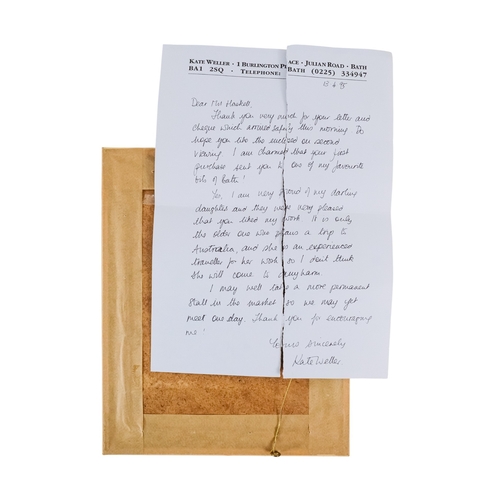 KATE WELLER · 1 BURLINGTON PLACE · JULIAN ROAD · BATH
BA1 2SQ · TELEPHONE: BATH (0225) 334947
Dear Mr Haskell,
Thank you very much for your letter and
cheque which arrived safely this morning. Do
hope you like the enclosed on second
viewing. I am charmed that your first
purchase sent you to one of my favourite
bits of Bath!
Yes, I am very proud of my darling
daughters and they were very pleased
that you liked my work. It is only
the older one who plans a trip to
Australia, and she is an experienced
traveller for her work so I don't think
she will come to any harm.
I may well take a more permanent
stall in the market so we may yet
meet one day. Thank you for encouraging
me!
Yours sincerely
Kate Weller